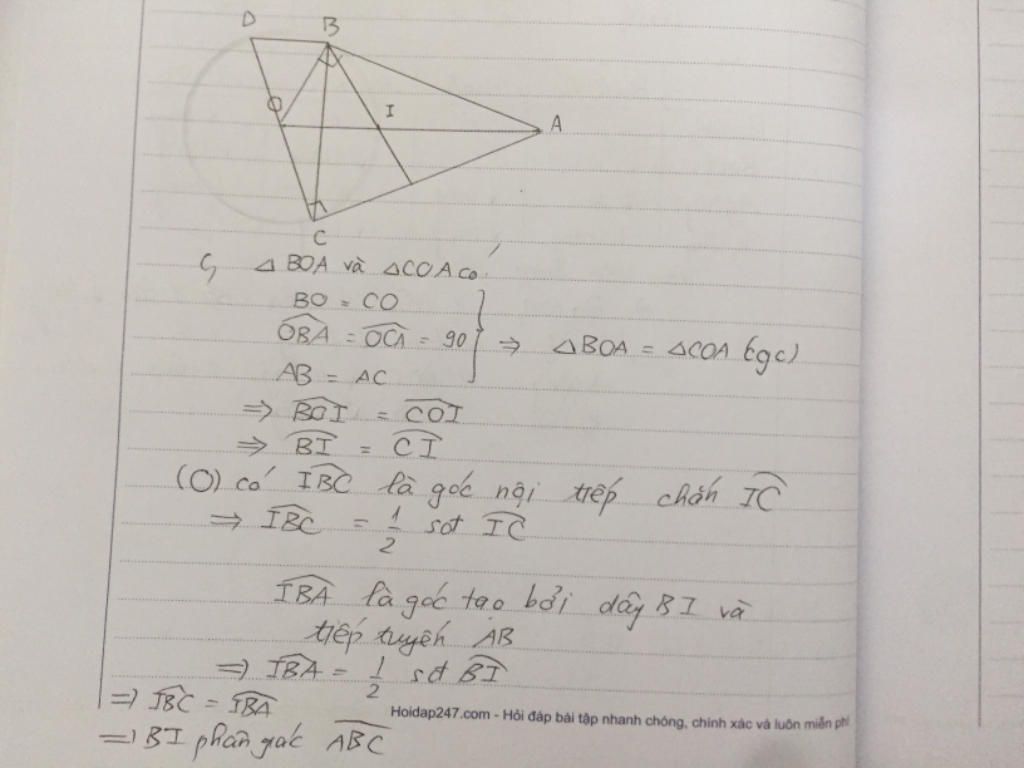 D B
O I A
C
c, △BOA và △COA có
BO = CO
OBA = OCA = 90 ⇒ △BOA = △COA (cgc)
AB = AC
⇒ BOI = COI
⇒ BI = CI
(O) có IBC là góc nội tiếp chắn IC
⇒ IBC = 1/2 sđt IC
IBA là góc tạo bởi dây BI và
tiếp tuyến AB
⇒ IBA = 1/2 sđ BI
⇒ IBC = IBA
⇒ BI phân giác ABC
Hoidap247.com - Hỏi đáp bài tập nhanh chóng, chính xác và luôn miễn phí